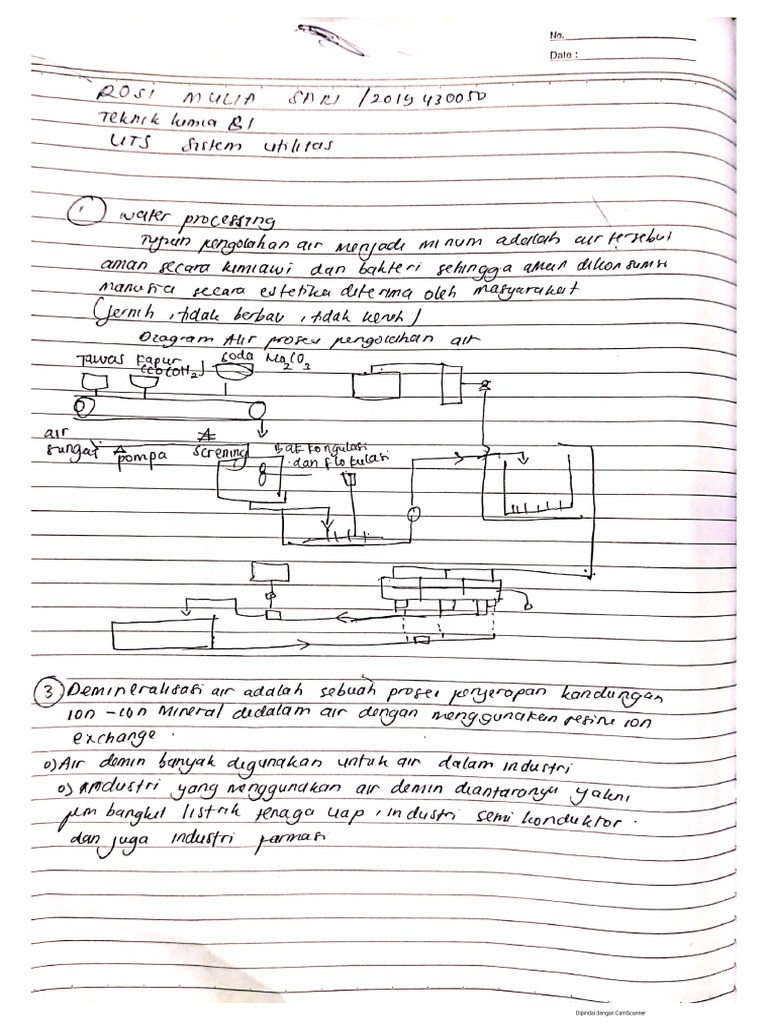 No.
Date :
ROSI MULIA SARI / 2019430050
Teknik kimia B1
UTS Sistem utilitas
1 water processing
Tujuan pengolahan air menjadi minum adalah air tersebut
aman secara kimiawi dan bakteri sehingga aman dikonsumsi
manusia secara estetika diterima oleh masyarakat
(Jernih, tidak berbau, tidak keruh)
Diagram Alir proses pengolahan air
Tawas kapur soda Na2CO3
air
sungai pompa screning Bak kongulasi
dan flokulasi
3 Demineralisasi air adalah sebuah proses penyerapan kandungan
ion-ion mineral didalam air dengan menggunakan resine ion
exchange.
o) Air demin banyak digunakan untuk air dalam industri
o) industri yang menggunakan air demin diantaranya yakni
bangkit listrik tenaga uap, industri semi konduktor.
dan juga industri farmasi
Dipindai dengan CamScanner